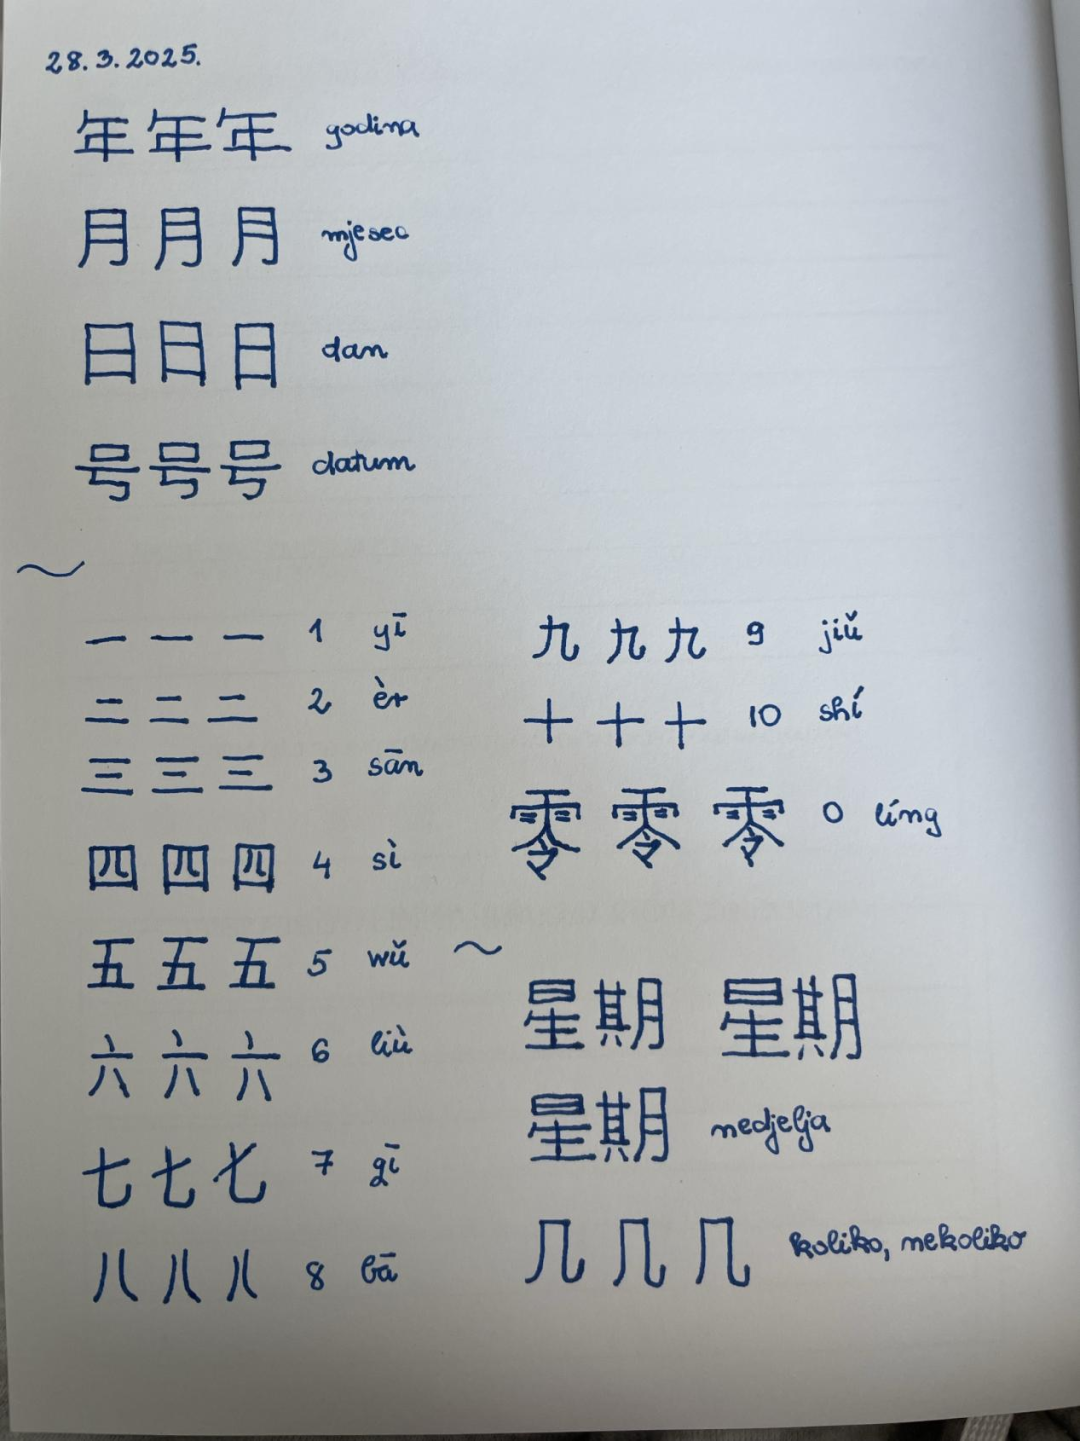 28.3.2025.
年 年 年 godina
月 月 月 mjesec
日 日 日 dan
号 号 号 datum
~
一 一 一 1 yī
二 二 二 2 èr
三 三 三 3 sān
四 四 四 4 sì
五 五 五 5 wǔ
六 六 六 6 liù
七 七 七 7 qī
八 八 八 8 bā
九 九 九 9 jiǔ
十 十 十 10 shí
零 零 零 0 líng
~
星期 星期
星期 nedjelja
几 几 几 koliko, nekoliko